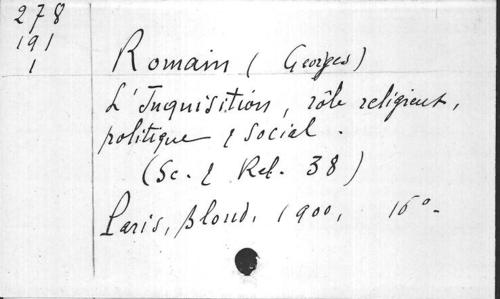 278
191
1
Romain (Georges)
L'Inquisition, rôle religieux,
politique & social.
(Sc. & Rel. 38)
Paris, Bloud, 1900, 16°.